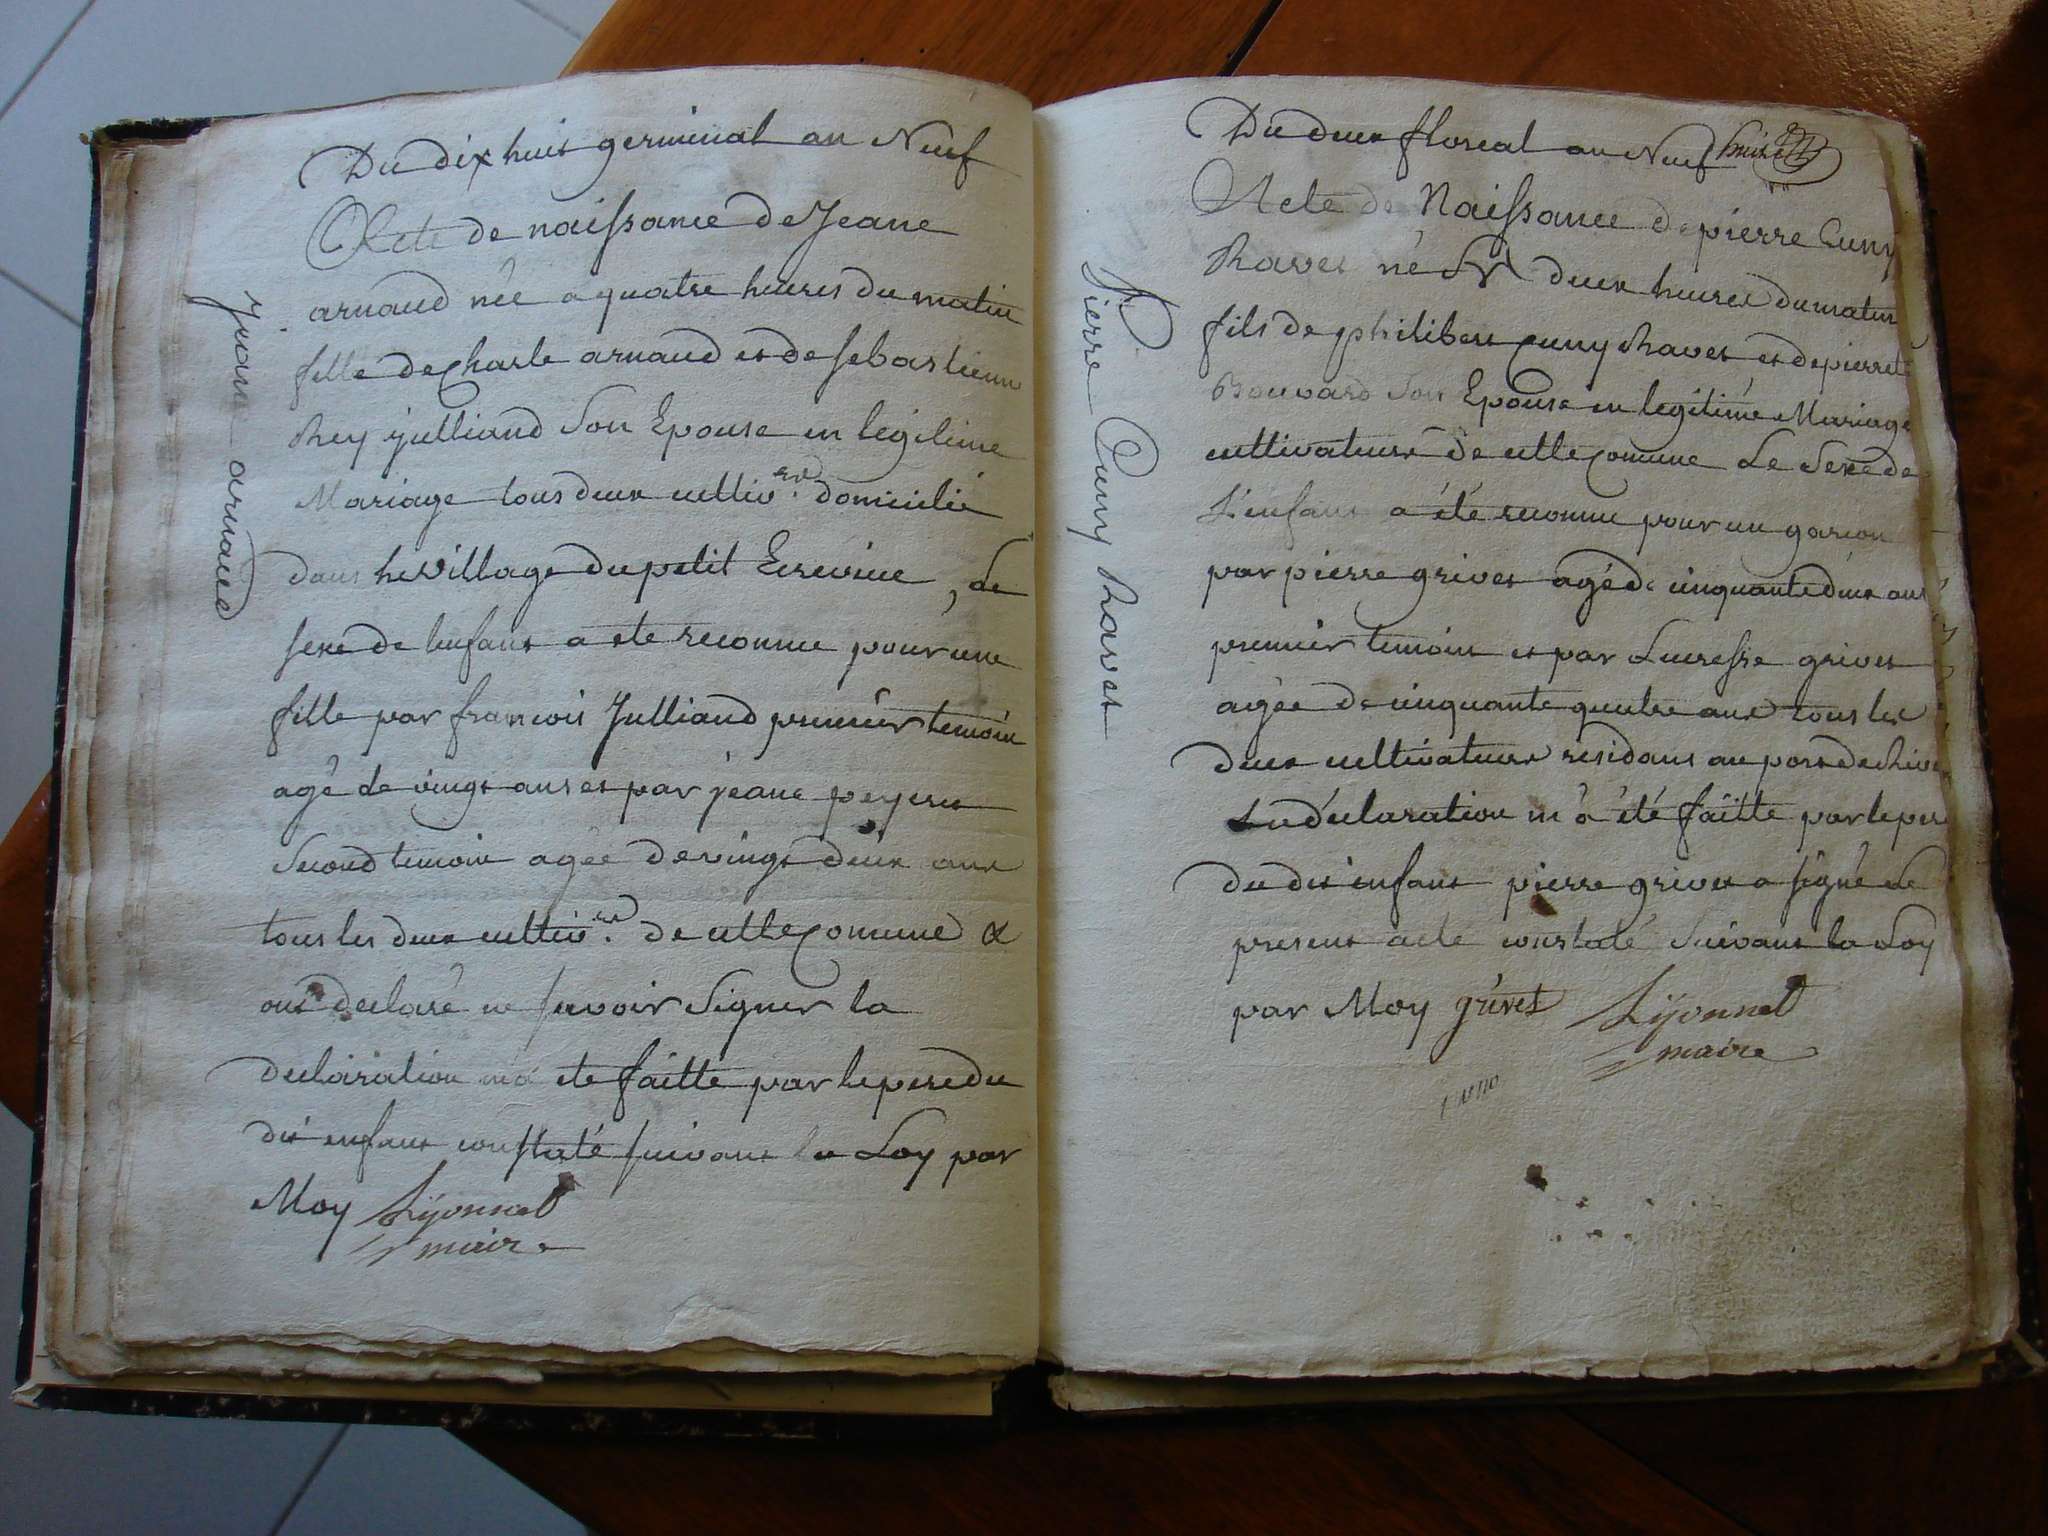 Jeane arnaud
Du dix huit germinal an Neuf
Acte de naissance de Jeane
arnaud née a quatre heures du matin
fille de Charle arnaud et de sebastienne
Rey julliand son Epouse en legitime
Mariage tous deux cultiv.rs domicilié
dans le village du petit Ecrivieu, Le
sexe de lenfant a ete reconnu pour une
fille par francois Julliand premier temoin
agé de vingt ans et par jeane
second temoin agée de vingt deux ans
tous les deux cultiv.rs de cette Comune &
ont declaré ne savoir signer la
declaration ma ete faitte par le pere du
dit enfant constaté suivant la Loy par
Moy Lÿonnet
maire
Pierre Cuny Ravet
Du deux floreal an Neuf huit
Acte de Naissance de pierre Cuny
Ravet né deux heures du matin
fils de philibert Cuny Ravet et de pierrette
Bouvard son Epouse en legitime Mariage
cultivateurs de cette Comune Le Sexe de
L'enfant a été reconnu pour un garcon
par pierre grivet agé de cinquante deux ans
premier temoin et par Lucresse grivet
agée de cinquante quatre ans tous les
deux cultivateurs residans au port de
La déclaration m'a été faitte par le pere
du dit enfant pierre grivet a signé Le
present acte constaté suivant la Loy
par Moy grivet Lÿonnet
maire